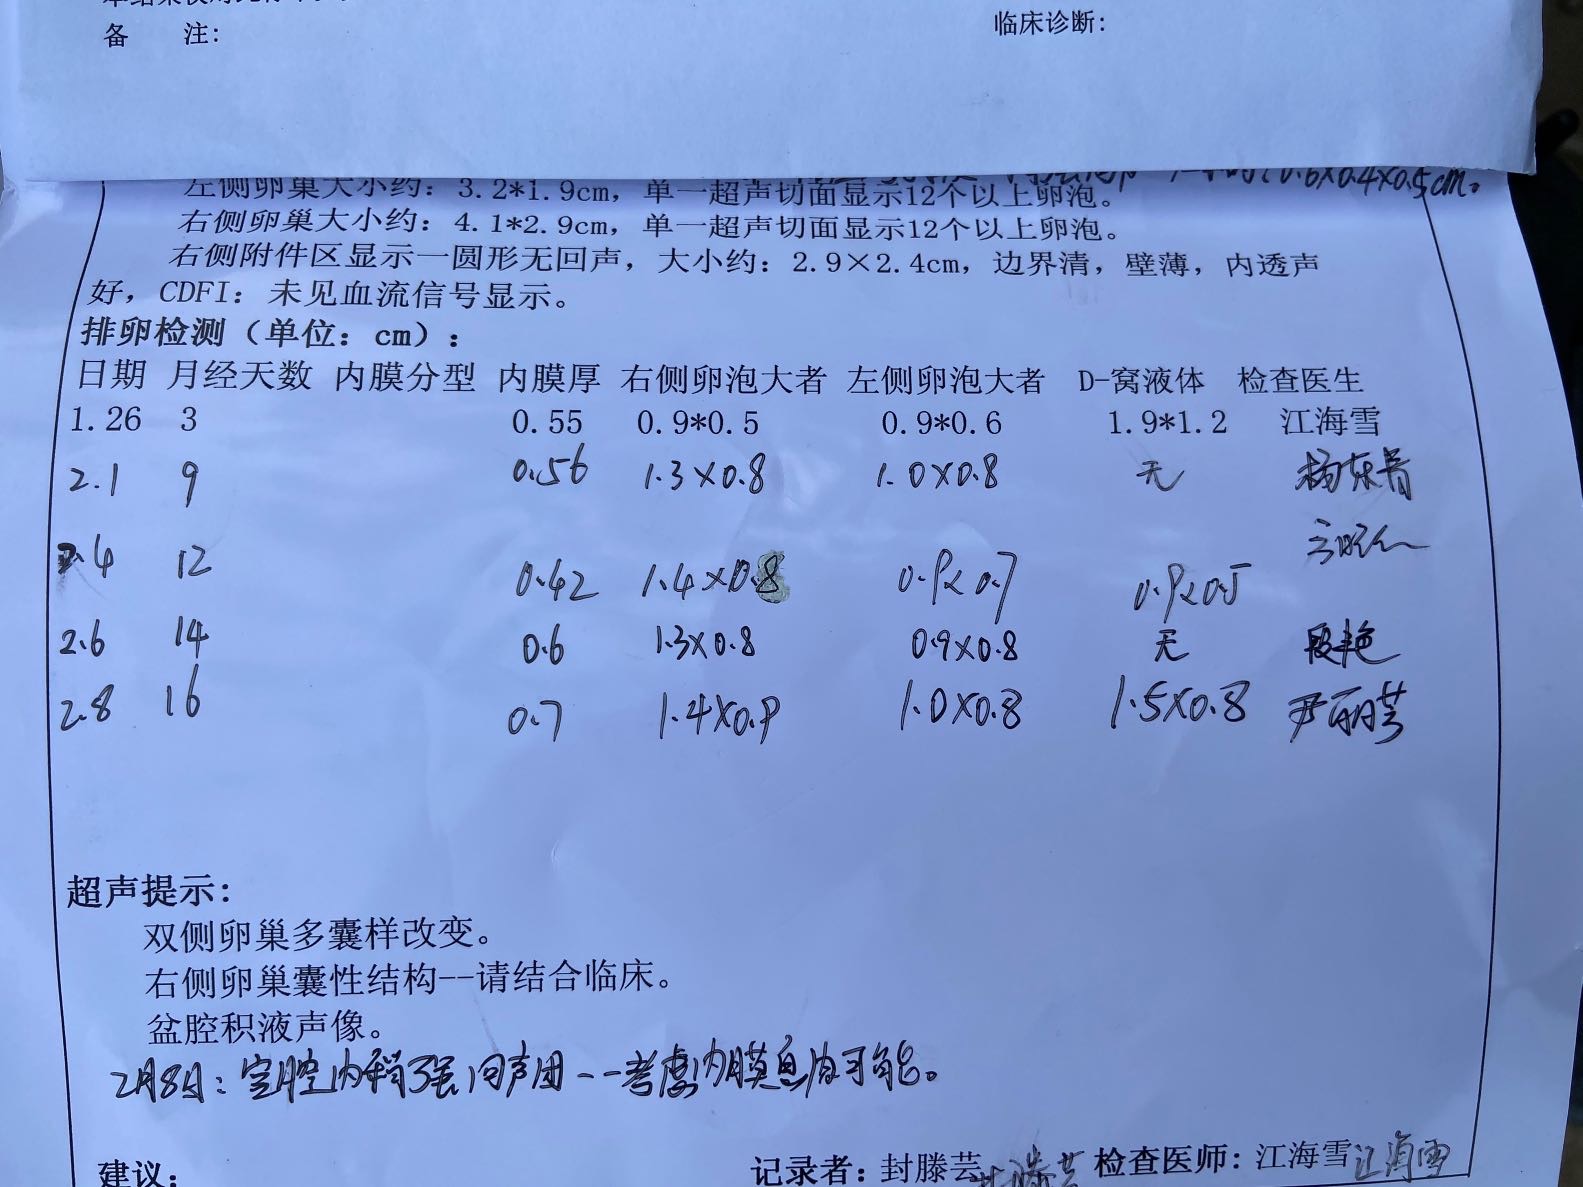 备 注:
临床诊断:
左侧卵巢大小约: 3.2*1.9cm, 单一超声切面显示12个以上卵泡。
0.6×0.4×0.5cm。
右侧卵巢大小约: 4.1*2.9cm, 单一超声切面显示12个以上卵泡。
右侧附件区显示一圆形无回声, 大小约: 2.9×2.4cm, 边界清, 壁薄, 内透声
好, CDFI: 未见血流信号显示。
排卵检测 (单位: cm) :
日期 月经天数 内膜分型 内膜厚 右侧卵泡大者 左侧卵泡大者 D-窝液体 检查医生
1.26 3 0.55 0.9*0.5 0.9*0.6 1.9*1.2 江海雪
2.1 9 0.56 1.3×0.8 1.0×0.8 无
2.4 12 0.42 1.4×0.8 0.9×0.7 0.9×0.5
2.6 14 0.6 1.3×0.8 0.9×0.8 无 段艳
2.8 16 0.7 1.4×0.9 1.0×0.8 1.5×0.8 尹丽芸
超声提示:
双侧卵巢多囊样改变。
右侧卵巢囊性结构--请结合临床。
盆腔积液声像。
2月8日: 宫腔内稍强回声团--考虑内膜息肉可能。
建议:
记录者: 封滕芸 封滕芸 检查医师: 江海雪 江海雪